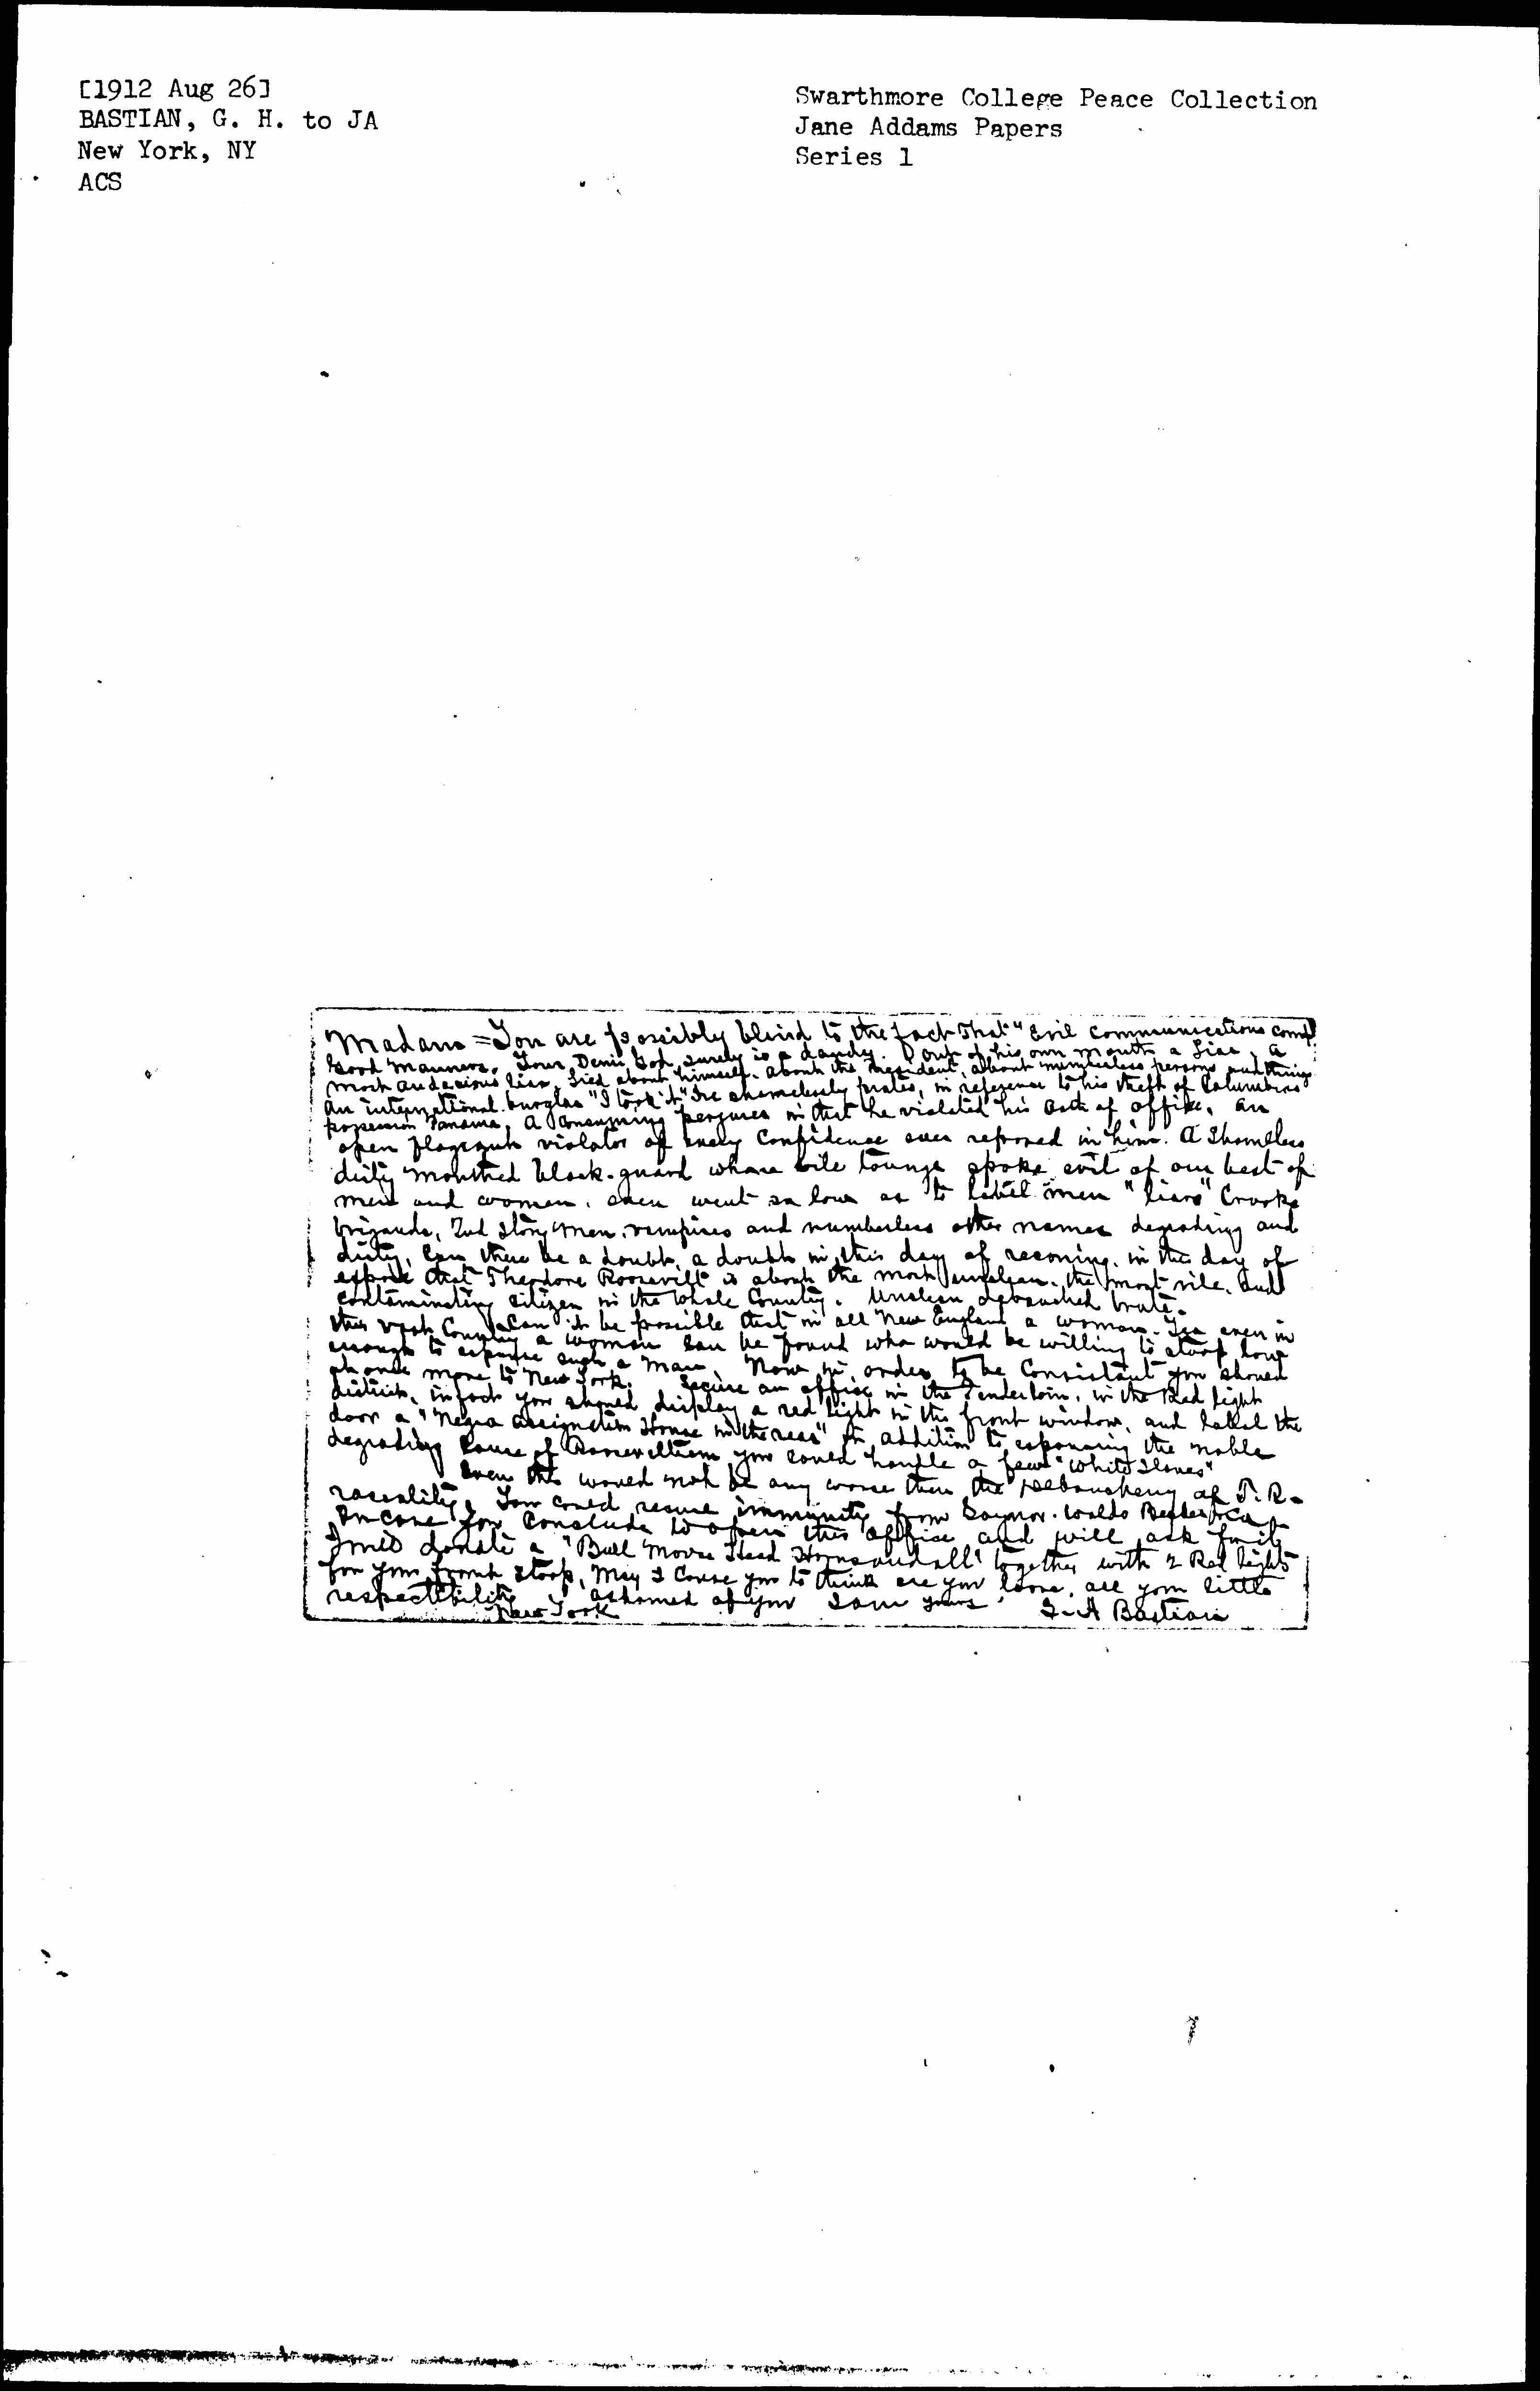 [1912 Aug 26]
BASTIAN, G. H. to JA
New York, NY
ACS
Swarthmore College Peace Collection
Jane Addams Papers
Series 1
Madam = You are possibly blind to the fact that "Evil communications
Good Manners. Your Demi God surely is a dandy. out of his own mouth a Liar, a
most audacious liar, Lied about himself. about the President, about numberless persons and things
An international burglar "I took it" he shamelessly prates, in reference to his theft of Columbias
possession Panama, A perjurer in that he violated his oath of office, an
open violator of every Confidence ever reposed in him. A Shameless
dirty mouthed black-guard whose vile tounge spoke evil of our best of
men and women, even went so low as to label men "liars" Crooks
brigands, 2nd Story Men, vampires and numberless other names degrading and
dirty, Can there be a doubt, a doubt in this day of reconing. in this day of
expose that Theodore Roosevelt is about the most unclean. the most vile. and
contaminating citizen in the whole Country. Unclean debauched brute.
Can it be possible that in all New England a woman. Yea even in
this vast Country a woman can be found who would be willing to stoop low
enough to espouse such a man. Now in order to be Consistant you should
at once move to New York. Secure an office in the Tenderloin, in the Red light
district, infact you should display a red light in the front window, and label the
door a "Negro assignation House in the rear" In addition to espousing the noble
degrading Cause of Rooseveltism you could handle a few "White Slaves"
Even this would not be any worse then the Debauchery of T. R.
rascality, You could secure immunity from Gaynor. Waldo Becker & Co
In case you Conclude to open this office and will ask
I will donate a "Bull Moose Head Horns and all" together with 2 Red lights
for your front stoop, May I Cause you to think ere you loose, all your little
respectibility, ashamed of you I am yours
New York
G-H Bastian